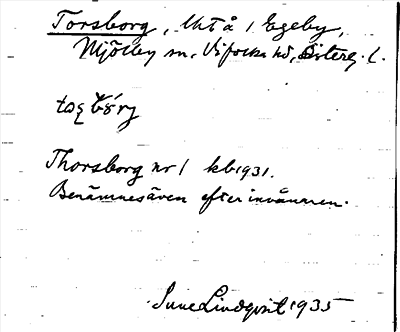 Torsborg, Ut å / Egeby,
Mjölby sn, Vifolka hd, Österg. l.
Thorsborg nr 1 kb 1931.
Benämnes även efter invånaren.
Sune Lindqvist 1935